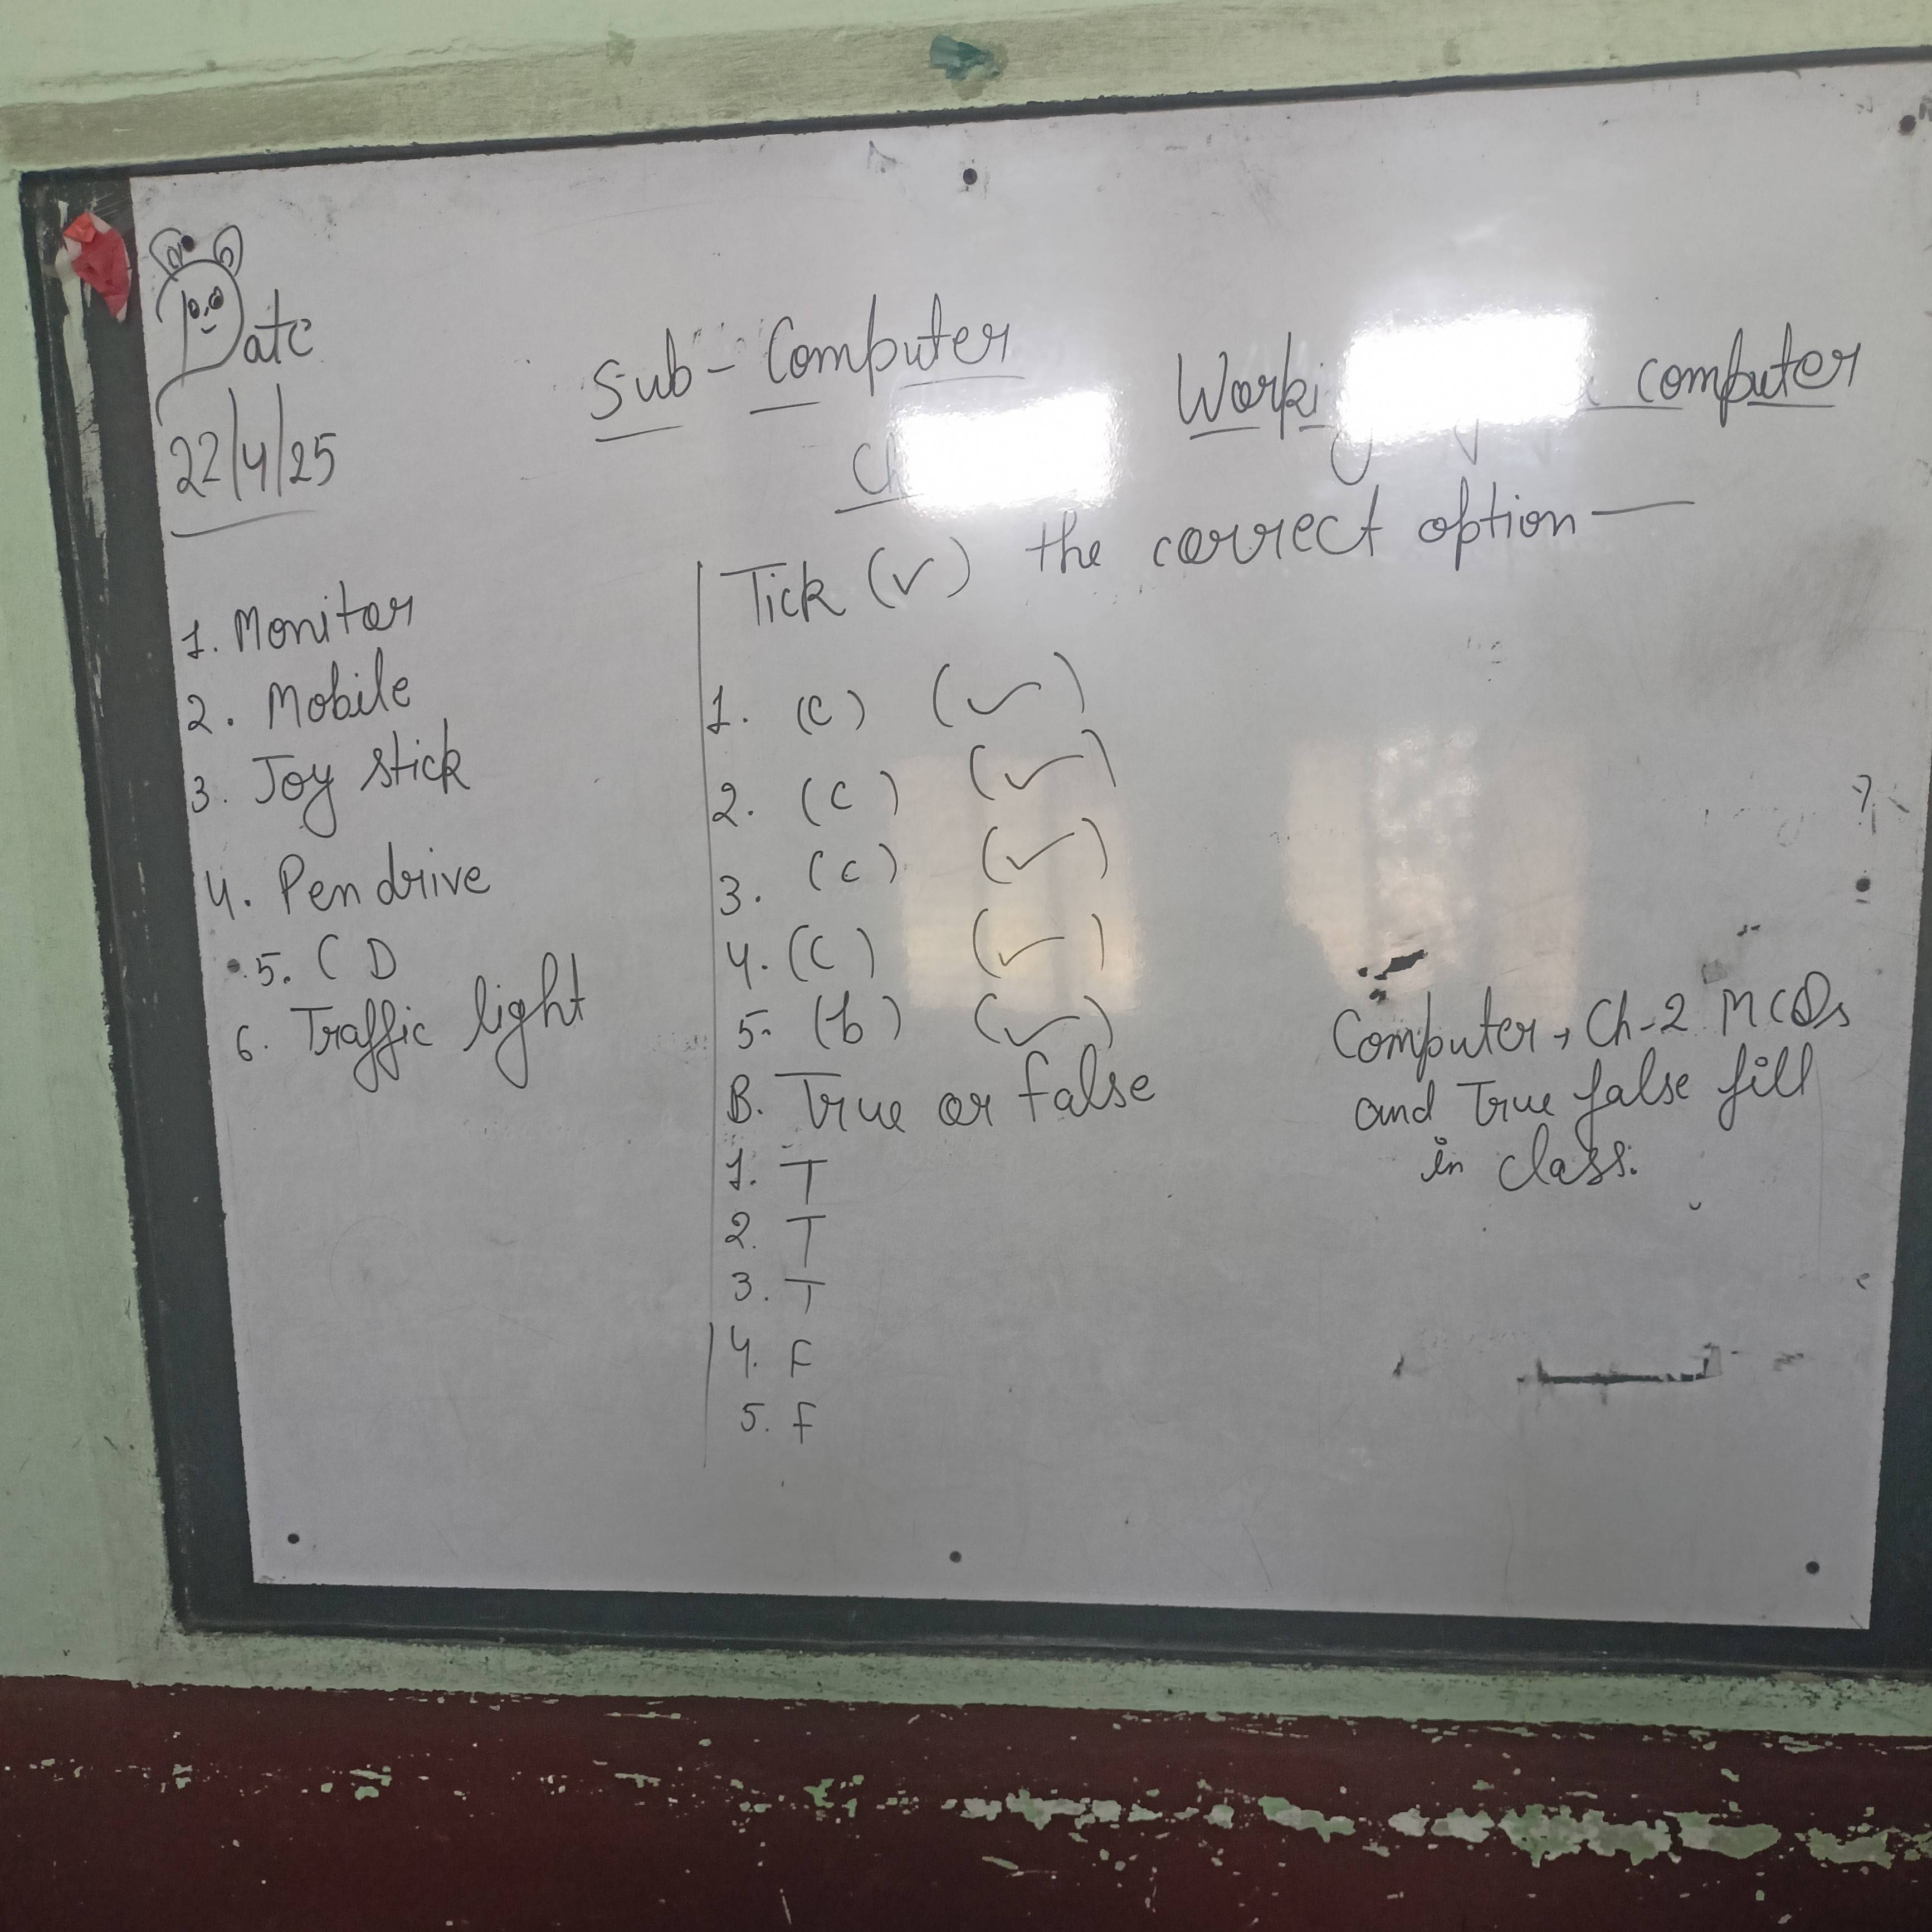 Date
22/4/25
Sub- Computer
Ch
computer
1. Monitor
2. Mobile
3. Joy stick
4. Pen drive
5. CD
6. Traffic light
Tick (✓) the correct option —
1. (c) (✓)
2. (c) (✓)
3. (c) (✓)
4. (c) (✓)
5. (b) (✓)
B. True or false
1. T
2. T
3. T
4. F
5. F
Computer, Ch-2 MCQs
and True false fill
in class.